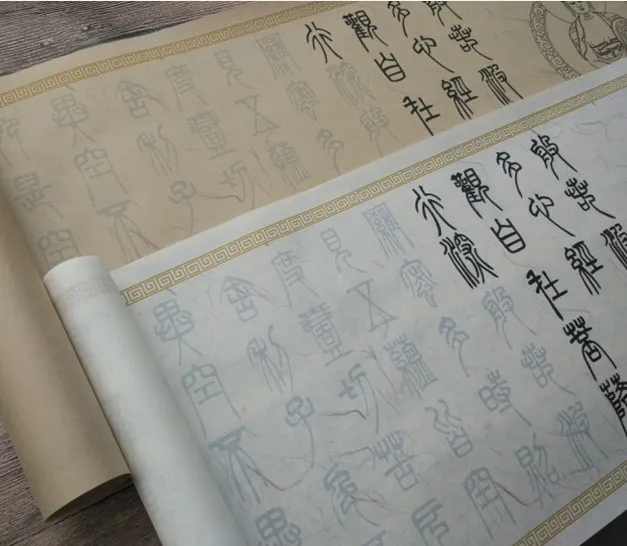 若波
多心經
觀自在
行深般
羅蜜多
見五蘊
度壹切
舍利子
異空不
是空
般若波
多心經
觀自在菩薩
行深般若波
羅蜜多時照
見五蘊皆空
度壹切苦厄
舍利子色
異空不異